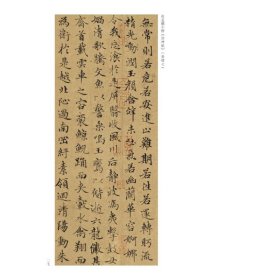 無常則若危若安進止難期若往若還轉眄流
精光潤玉顏含辭未吐氣若幽蘭華容婀娜
令我忘飡於是屏翳收風川后靜波馮夷擊鼓女
媧清歌騰文魚以警乘鳴玉鸞以偕逝六龍儼其
齊首載雲車之容裔鯨鯢踊而夾轂水禽翔而
為衛於是越北沚過南岡紆素領迴清陽動朱